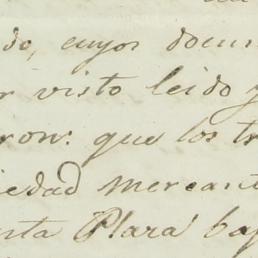 do, cuyos docum
r visto leido y
ron: que los tr
iedad mercant
nta Clara baj